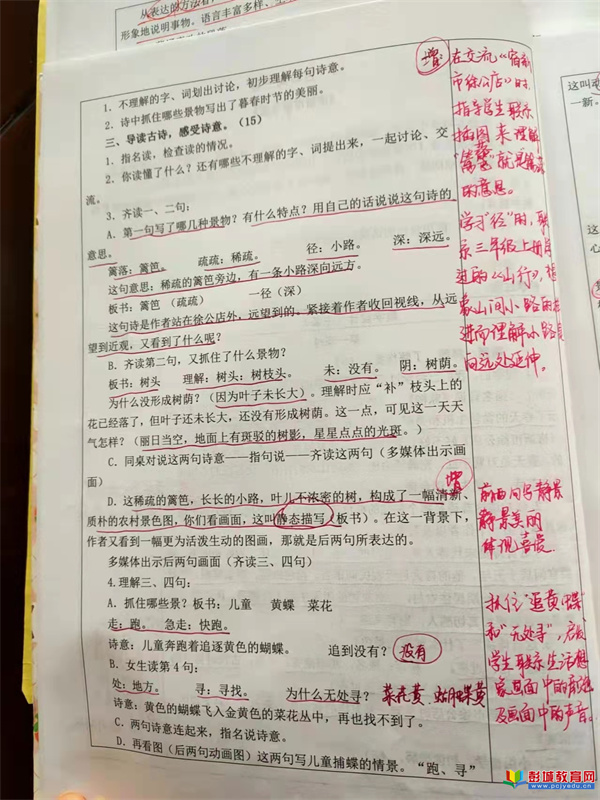 从表达的方法看，
形象地说明事物。语言丰富多样、生
1. 不理解的字、词划出讨论，初步理解每句诗意。
2. 诗中抓住哪些景物写出了暮春时节的美丽。
三、导读古诗，感受诗意。（15）
1. 指名读，检查读的情况。
2. 你读懂了什么？还有哪些不理解的字、词提出来，一起讨论、交
流。
3. 齐读一、二句：
A. 第一句写了哪几种景物？有什么特点？用自己的话说说这句诗的
意思。
篱落：篱笆。 疏疏：稀疏。 径：小路。 深：深远。
这句意思：稀疏的篱笆旁边，有一条小路深向远方。
板书：篱笆 （疏疏） 一径（深）
这句诗是作者站在徐公店外，远望到的。紧接着作者收回视线，从远
望到近观，又看到了什么呢？
B. 齐读第二句，又抓住了什么景物？
板书：树头 理解：树头：树枝头。 未：没有。 阴：树荫。
为什么没形成树荫？（因为叶子未长大）。理解时应“补”枝头上的
花已经落了，但叶子还未长大，还没有形成树荫。这一点，可见这一天天
气怎样？（丽日当空，地面上有斑驳的树影，星星点点的光斑。）
C. 同桌对说这两句诗意——指名说——齐读这两句（多媒体出示画
面）
D. 这稀疏的篱笆，长长的小路，叶儿不浓密的树，构成了一幅清新、
质朴的农村景色图，你们看画面，这叫静态描写（板书）。在这一背景下，
作者又看到一幅更为活泼生动的图画，那就是后两句所表达的。
多媒体出示后两句画面（齐读三、四句）
4. 理解三、四句：
A. 抓住哪些景？板书：儿童 黄蝶 菜花
走：跑。 急走：快跑。
诗意：儿童奔跑着追逐黄色的蝴蝶。 追到没有？ 没有
B. 女生读第4句：
处：地方。 寻：寻找。 为什么无处寻？ 菜花黄 蝴蝶黄
诗意：黄色的蝴蝶飞入金黄色的菜花丛中，再也找不到了。
C. 两句诗意连起来，指名说诗意。
D. 再看图（后两句动画图）这两句写儿童捕蝶的情景。“跑、寻”
增：在交流《宿新
市徐公店》时，
指导学生联系
插图来理解
就是篱笆
的意思。
学习“径”时，联
系三年级上册学
过的《山行》，想
象山间小路的
进而理解小路
向远处延伸。
增
前两句写静景
静景美丽
体现喜爱
抓住“追黄蝶”
和“无处寻”，启发
学生联系生活想
象画面中的
及画面中的声音。
这叫
一新。
心
彭城教育网
www.pcjyedu.cn